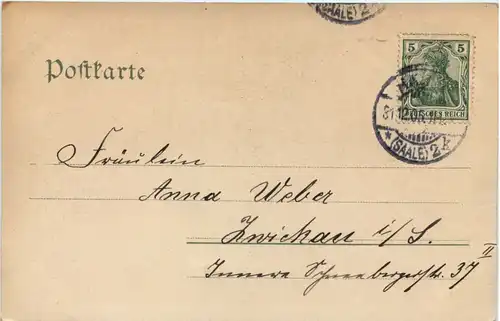 (SAALE) 2
5 5
Postkarte
31.12.05
DEUTSCHES REICH
* (SAALE) 2 k
Fräulein
Anna Weber
Zwickau i/S.
Innere Schneebergerstr. 37 II